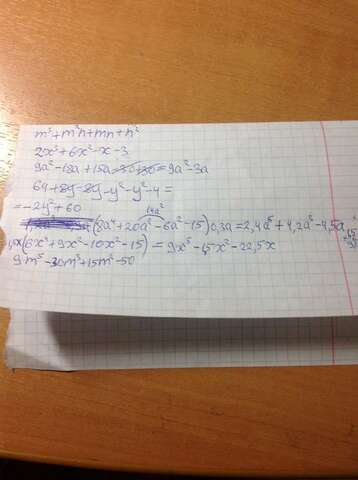 m³+m²n+mn+n²
2x³+6x²-x-3
9a²-18a+15a-30+30=9a²-3a
64+8y-8y-y²-y²-4=
=-2y²+60
14a²
(8a⁴+20a²-6a²-15)0,3a=2,4a⁵+4,2a³-4,5a
(6x³+9x²-10x²-15)=9x⁵-1,5x²-22,5x
9m⁵-30m³+15m²-50